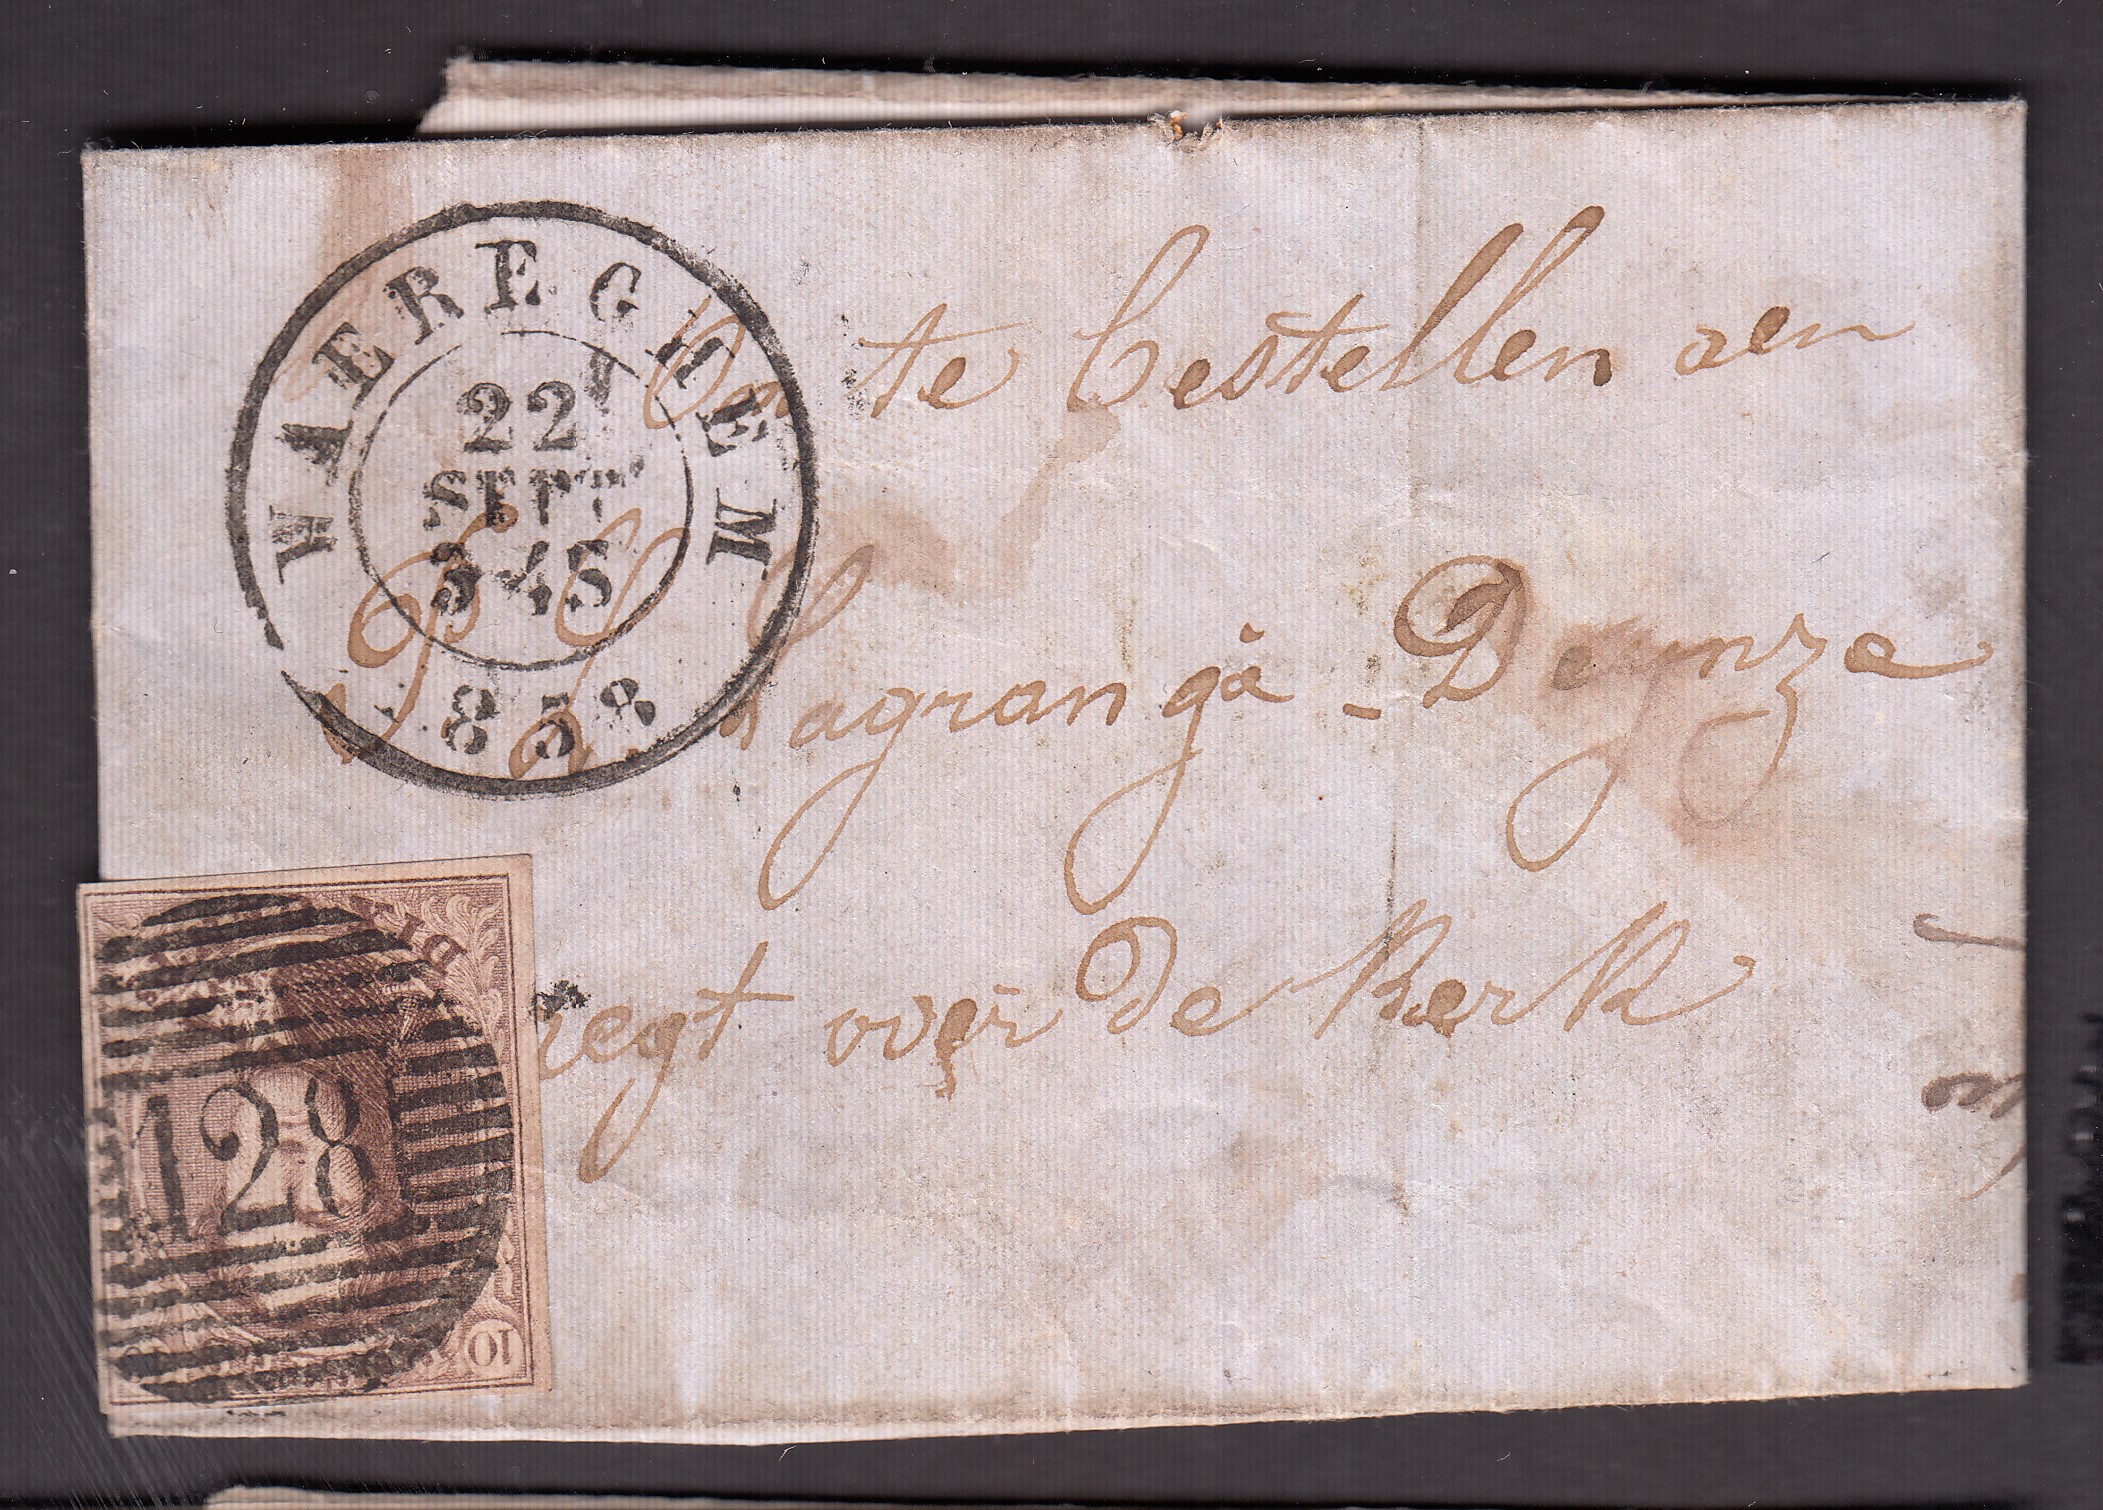 WAEREGHEM
22
SEPT
3-4S
1858
te bestellen aen
Lagrangà - Deynze
regt over de Kerk
128
10